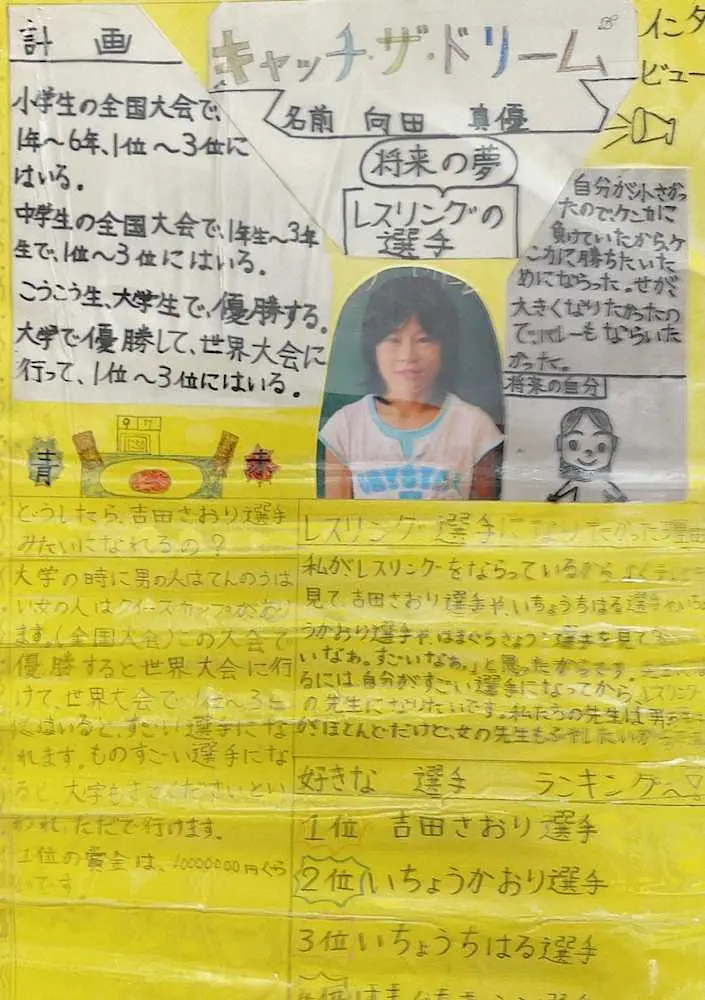 キャッチ・ザ・ドリーム
名前 向田 真優
将来の夢
レスリングの
選手
計画
小学生の全国大会で、
1年〜6年、1位〜3位に
はいる。
中学生の全国大会で、1年生〜3年
生で、1位〜3位にはいる。
こうこう生、大学生で、優勝する。
大学で優勝して、世界大会に
行って、1位〜3位にはいる。
インタ
ビュー
自分が小さかっ
たので、ケンカに
負けていたから、ケ
ンカに勝ちたいた
めにならった。せが
大きくなりたかったの
で、バレーもならいた
かった。
将来の自分
青
赤
どうしたら、吉田さおり選手
みたいになれるの？
大学の時に男の人はてんのうは
い女の人はクイーンズカップがあり
ます。(全国大会)この大会で
優勝すると世界大会に行
けて、世界大会で、1位〜3位
にはいると、すごい選手にな
れます。ものすごい選手にな
ると、大学もきてくださいとい
われ、ただで行けます。
1位の賞金は、10000000円くら
いです。
レスリング選手になりたかった理由
私がレスリングをならっているから
見て、吉田さおり選手や、いちょうちはる選手や、いちょ
うかおり選手や、はまぐちきょうこ選手を見て
いなぁ。すごいなぁ。」と思ったからです。
るには、自分がすごい選手になってから、レスリング
の先生になりたいです。私たちの先生は男
がほとんどだけど、女の先生もふやしたい
好きな 選手 ランキング〜!
1位 吉田さおり選手
2位 いちょうかおり選手
3位 いちょうちはる選手